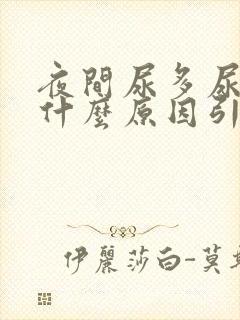 夜間尿多尿
什麼原因引
伊麗莎白-莫